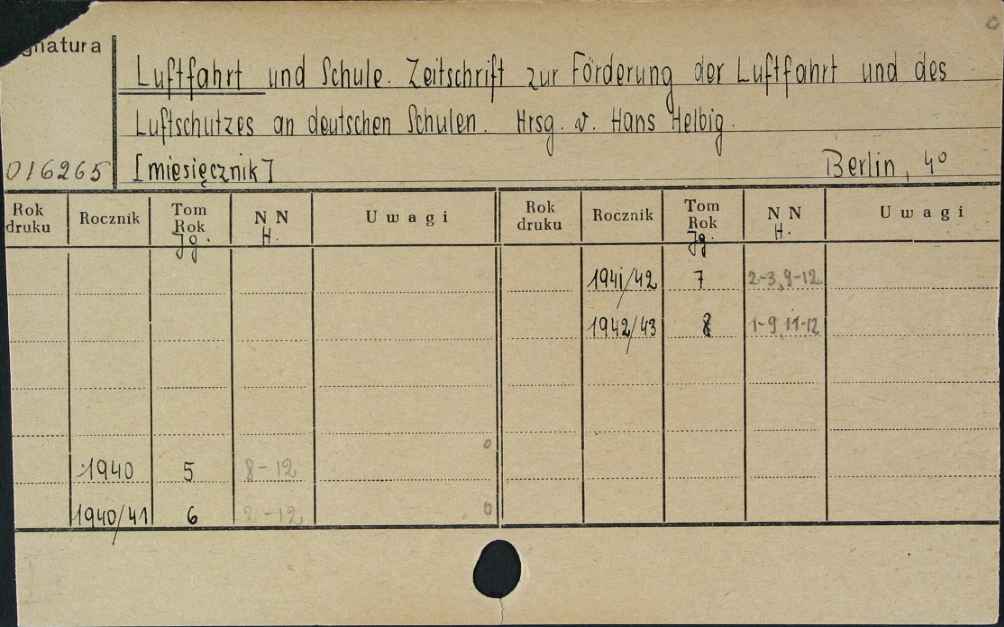 gnatura
Luftfahrt und Schule. Zeitschrift zur Förderung der Luftfahrt und des
Luftschutzes an deutschen Schulen. Hrsg. v. Hans Helbig.
016265 [miesięcznik] Berlin, 4°
Rok druku Rocznik Tom Rok Jg. NN H. Uwagi Rok druku Rocznik Tom Rok Jg. NN H. Uwagi
1941/42 7 2-3, 9-12
1942/43 8 1-9, 11-12
1940 5 8-12
1940/41 6 -12